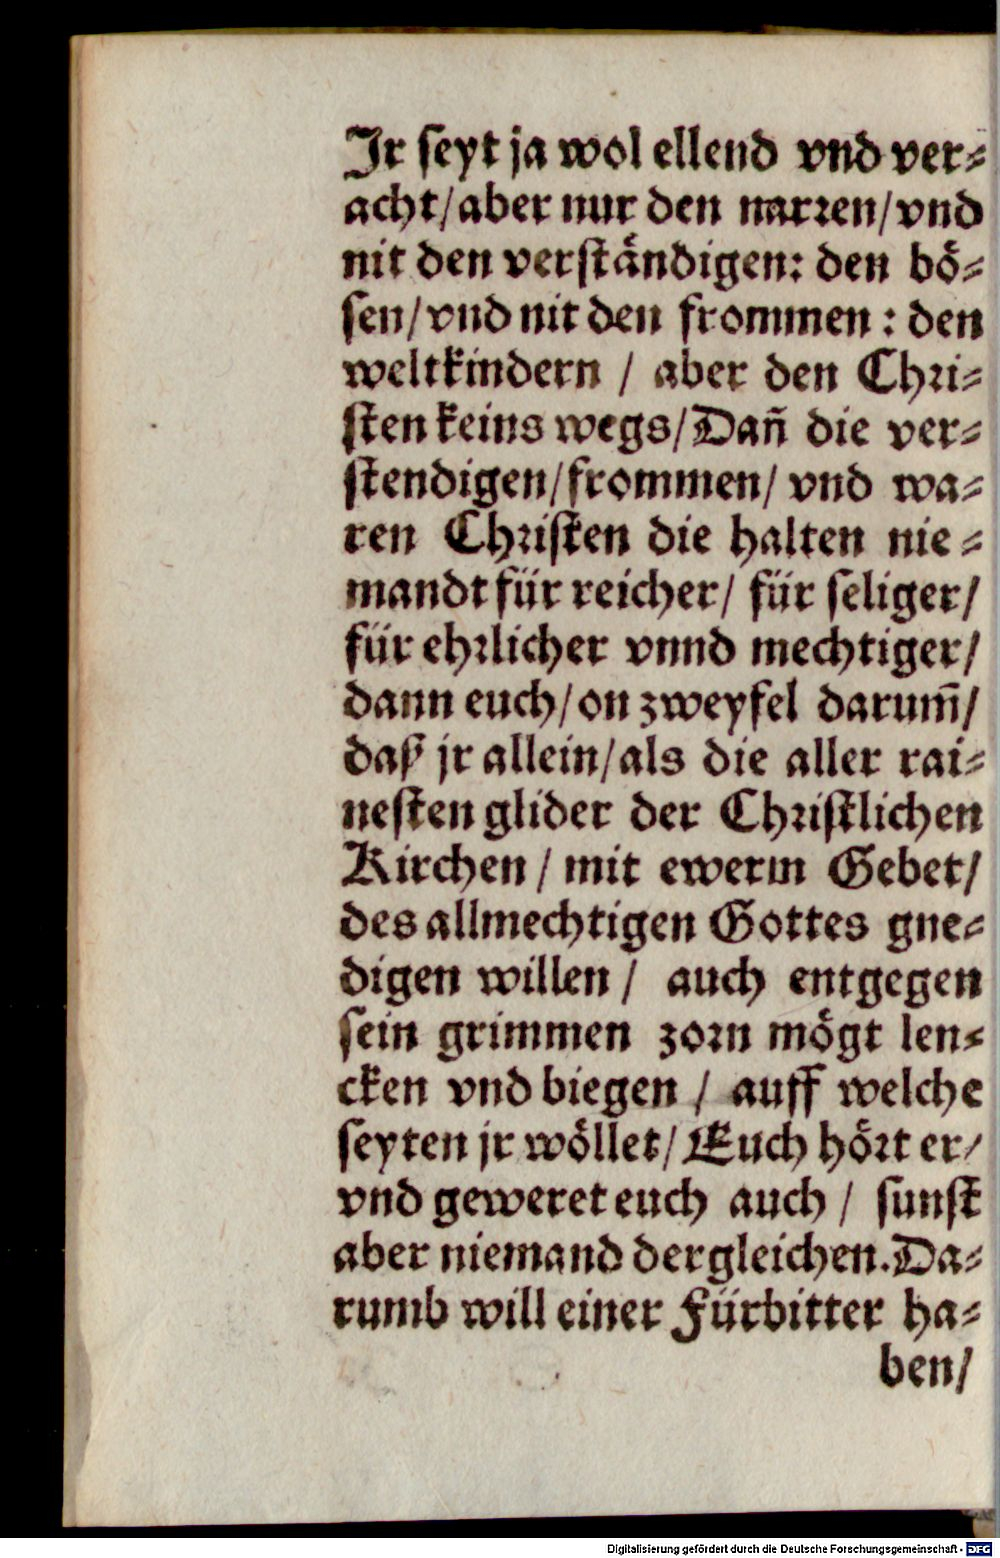 Jr seyt ja wol ellend vnd ver⸗
acht/ aber nur den narren/ vnd
nit den verstaͤndigen: den boͤ⸗
sen/ vnd nit den frommen : den
weltkindern / aber den Chri⸗
sten keins wegs/ Dañ die ver⸗
stendigen/ frommen/ vnd wa⸗
ren Christen die halten nie⸗
mandt für reicher/ für seliger/
für ehrlicher vnnd mechtiger/
dann euch/ on zweyfel darum̃/
daß jr allein/ als die aller rai⸗
nesten glider der Christlichen
Kirchen / mit ewerm Gebet/
des allmechtigen Gottes gne⸗
digen willen / auch entgegen
sein grimmen zorn moͤgt len⸗
cken vnd biegen / auff welche
seyten jr woͤllet/ Euch hoͤrt er/
vnd geweret euch auch / sunst
aber niemand dergleichen. Da⸗
rumb will einer Fürbitter ha⸗
ben/
Digitalisierung gefördert durch die Deutsche Forschungsgemeinschaft - DFG